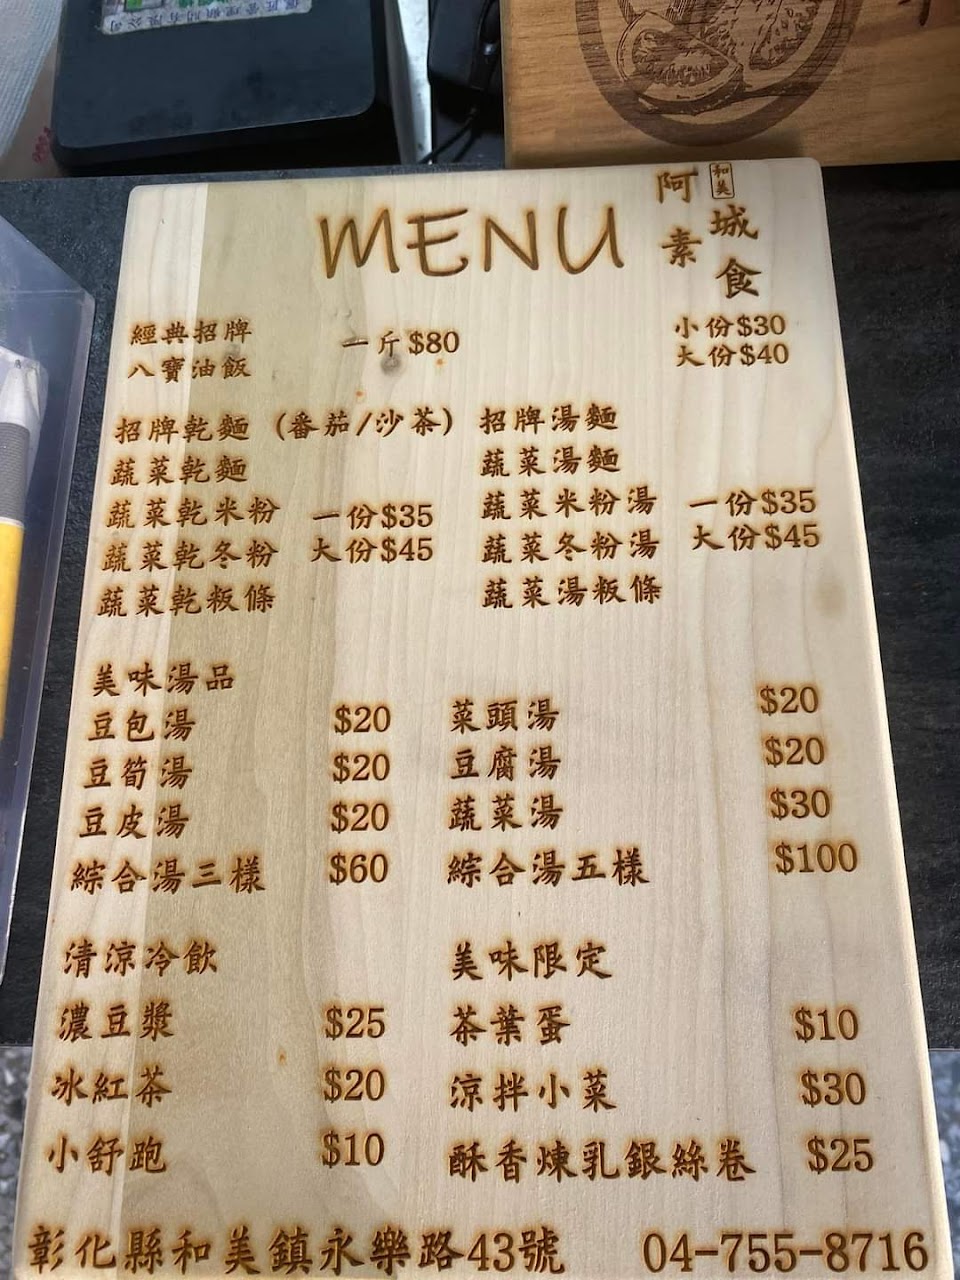 和美
阿素
城食
MENU
經典招牌
八寶油飯
一斤$80
小份$30
大份$40
招牌乾麵 (番茄/沙茶)
蔬菜乾麵
蔬菜乾米粉
蔬菜乾冬粉
蔬菜乾粄條
一份$35
大份$45
招牌湯麵
蔬菜湯麵
蔬菜米粉湯
蔬菜冬粉湯
蔬菜湯粄條
一份$35
大份$45
美味湯品
豆包湯 $20
菜頭湯 $20
豆筍湯 $20
豆腐湯 $20
豆皮湯 $20
蔬菜湯 $30
綜合湯三樣 $60
綜合湯五樣 $100
清涼冷飲
濃豆漿 $25
冰紅茶 $20
小舒跑 $10
美味限定
茶葉蛋 $10
涼拌小菜 $30
酥香煉乳銀絲卷 $25
彰化縣和美鎮永樂路43號 04-755-8716